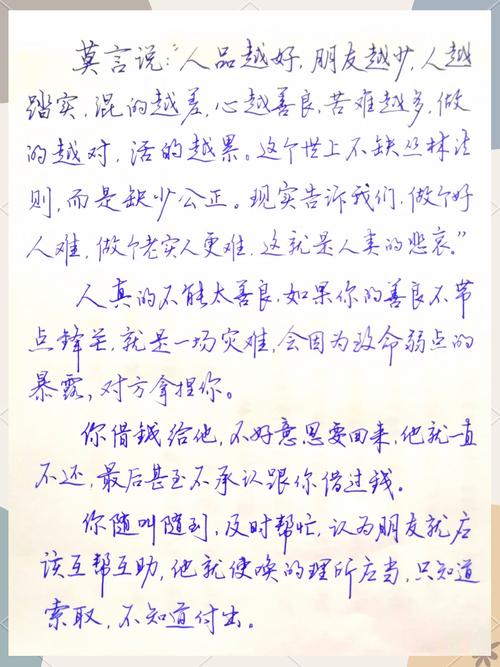 莫言说:“人品越好,朋友越少,人越
踏实,混的越差,心越善良,苦难越多,做
的越对,活的越累。这个世上不缺丛林法
则,而是缺少公正。现实告诉我们,做个好
人难,做个老实人更难,这就是人类的悲哀。”
人真的不能太善良,如果你的善良不带
点锋芒,就是一场灾难,会因为致命弱点的
暴露,对方拿捏你。
你借钱给他,不好意思要回来,他就一直
不还,最后甚至不承认跟你借过钱。
你随叫随到,及时帮忙,认为朋友就应
该互帮互助,他就使唤的理所应当,只知道
索取,不知道付出。